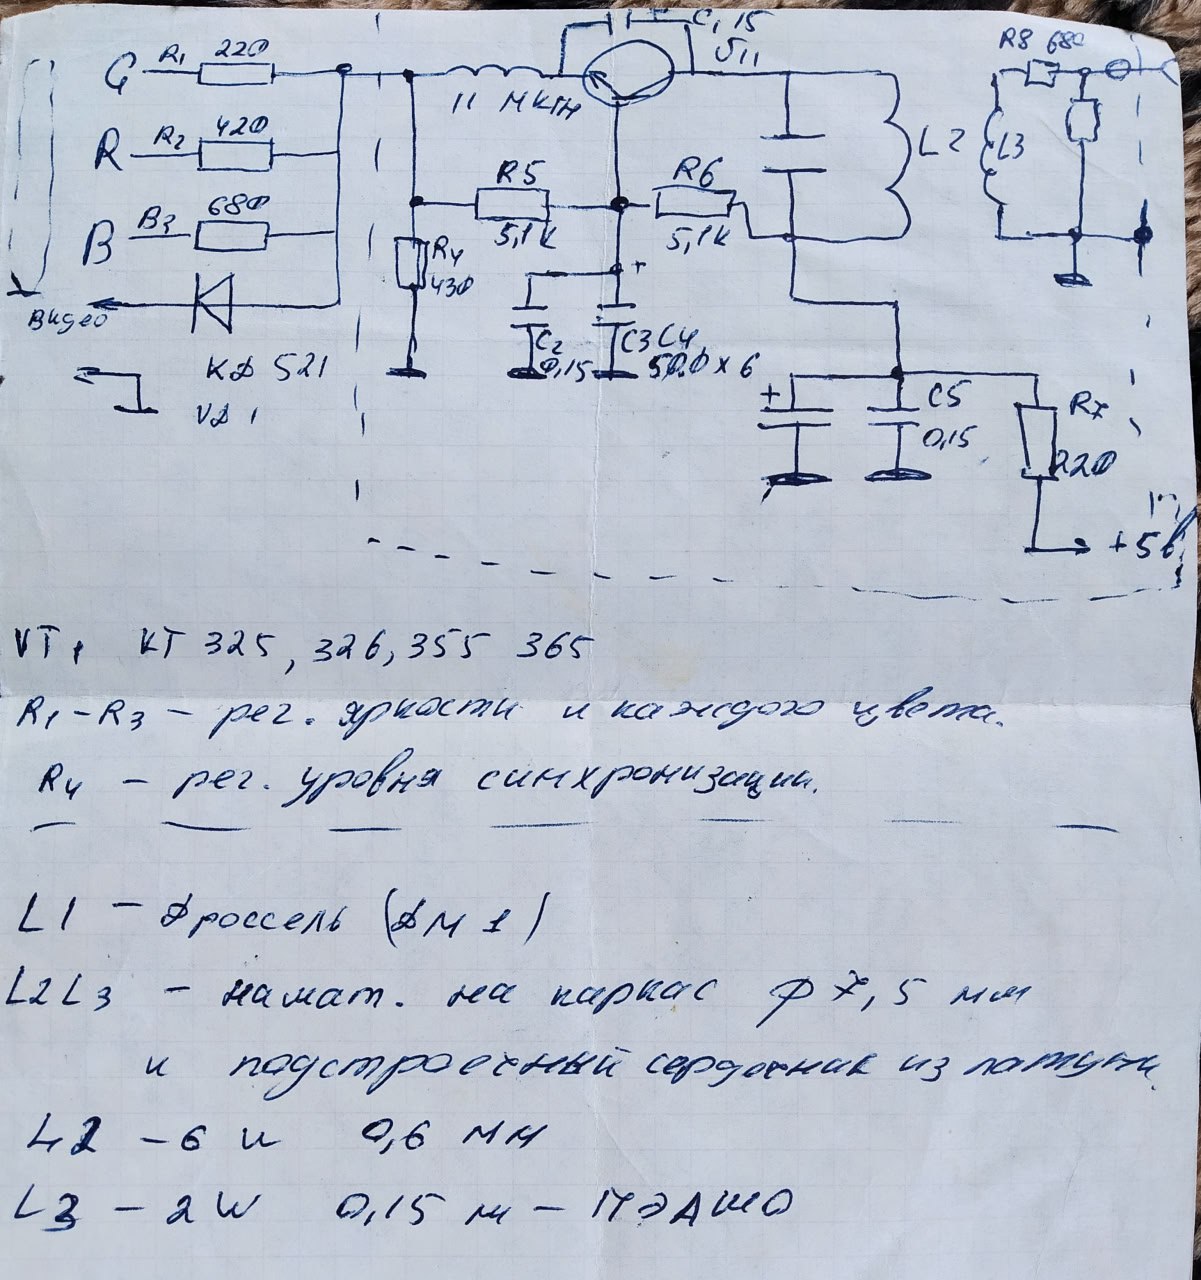 G R1 220
R R2 420
B B3 680
Видео
КД 521
VД 1
11 мкГн
C1 15
R5
5,1к
R6
5,1к
R4
430
C2
0,15
C3 C4
50,0 х 6
L2
L3
R8 680
C5
0,15
R7
220
+5в
VT1 КТ 325, 326, 355 365
R1-R3 - рег. яркости и каждого цвета.
R4 - рег. уровня синхронизации.
L1 - Дроссель (ДМ 1)
L2L3 - намат. на каркас φ 7,5 мм
и подстроечный сердечник из латуни.
L2 - 6 w 0,6 мм
L3 - 2 W 0,15 м - ПЭЛШО